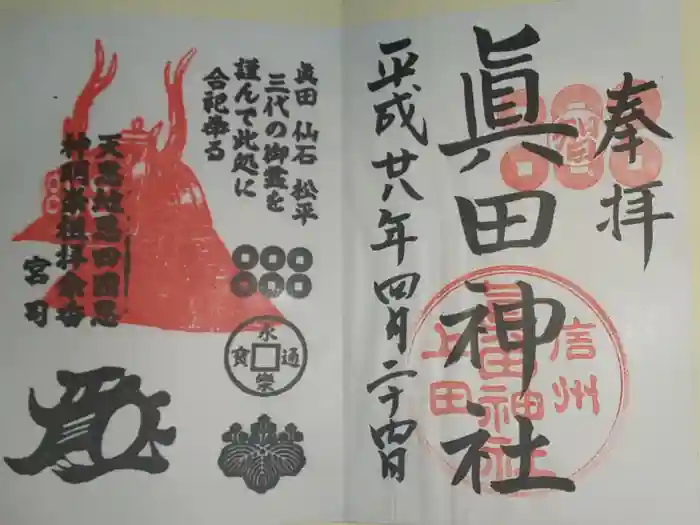 奉拝
眞田神社
平成廿八年四月二十四日
信州
上田
眞田神社
眞田 仙石 松平
三代の御霊を
謹んで此処に
合祀奉る
天恩地恩四国恩
宮司
永樂通寳